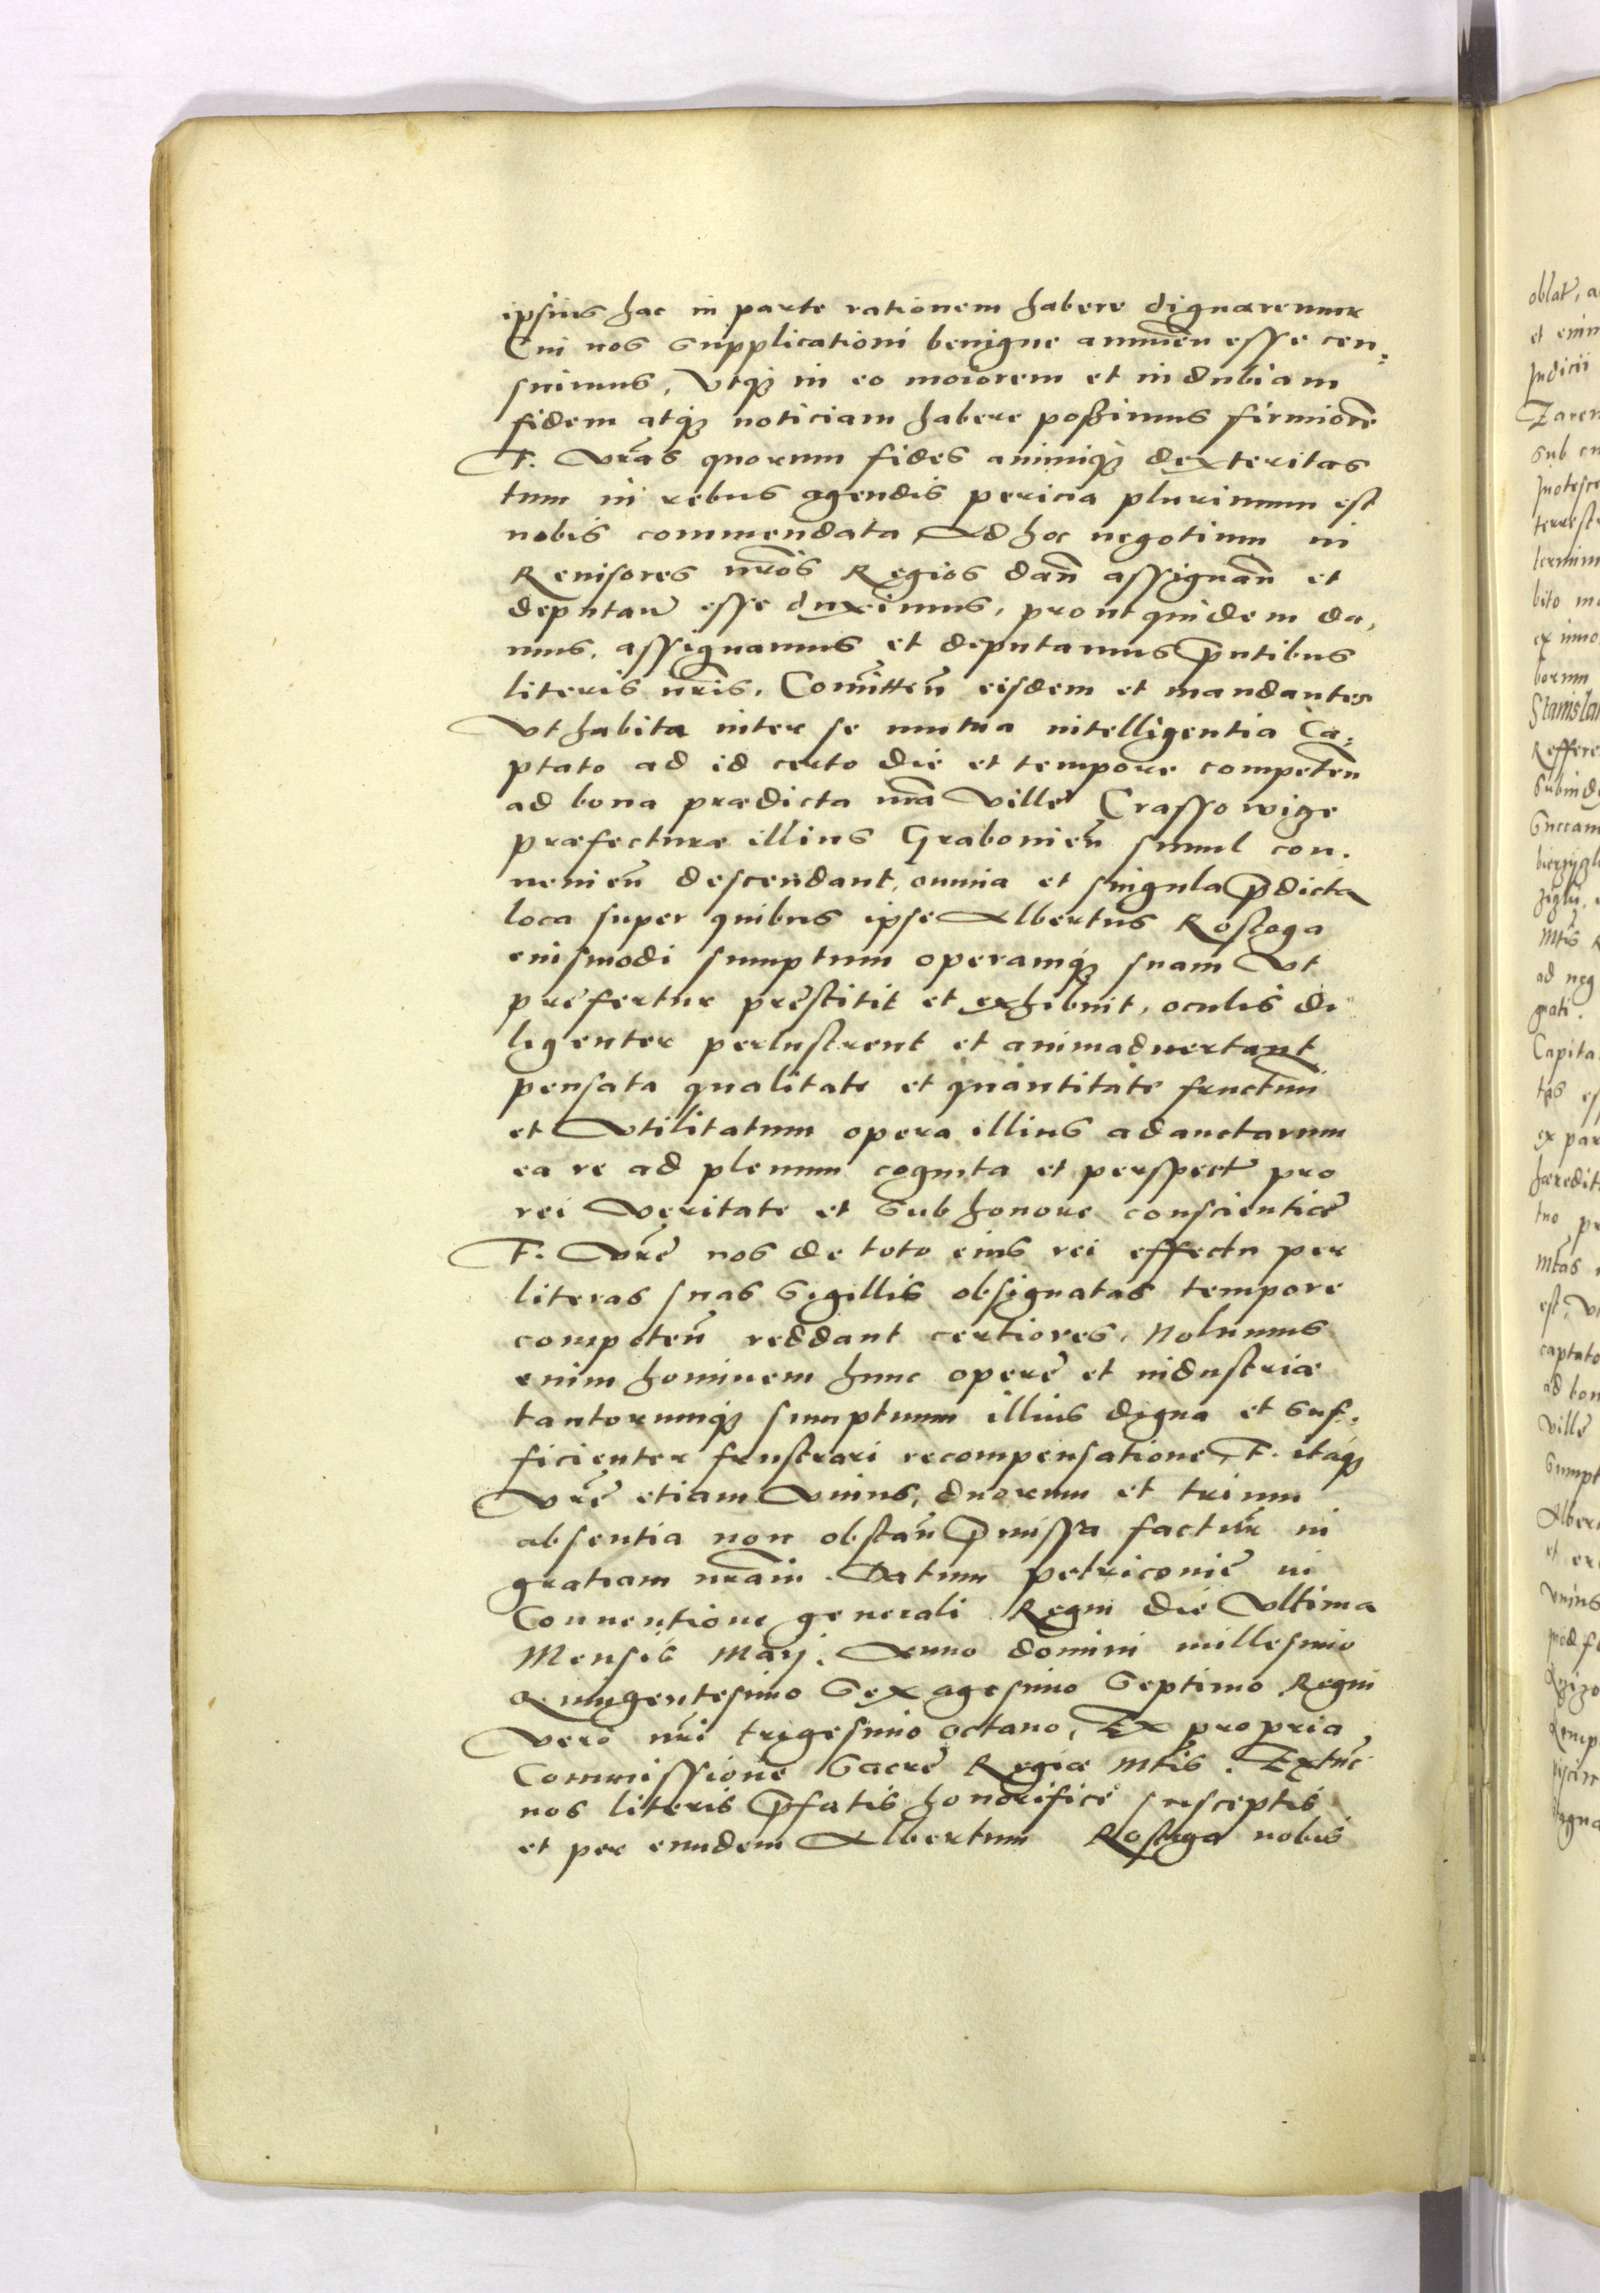 ipsius hac in parte rationem habere dignaremur
Cui nos supplicationi benigne annuen̄ esse cen-
suimus, Utqꝫ in eo maiorem et indubiam
fidem atqꝫ noticiam habere possimus firmiorē
F. vr̄as quorum fides animiqꝫ dexteritas
tum in rebus agendis pericia plurimum est
nobis commendata Ad hoc negotium in
Revisores nr̄os Regios dan̄ assignan̄ et
deputan̄ esse duximus, prout quidem da,
mus, assignamus et deputamus p̄ntibus
literis nr̄is, Com̄itten̄ eisdem et mandantes
Ut habita inter se mutua intelligentia Ca,
ptato ad id certo die et tempore competen̄
ad bona prædicta nr̄a Villę Crassowige
præfecturæ illius Grabonien̄ simul con,
venien̄ descendant, omnia et singula p̄dicta
loca super quibus ipse Albertus Rostoga
eiusmodi sumptum operamqꝫ suam Ut
pręfertur pręstitit et exhibuit, oculis di
ligenter perlustrent et animadvertant
pensata qualitate et quantitate fructuū
et Utilitatum opera illius adauctarum
ea re ad plenum cognita et perspect̄ pro
rei Veritate et Sub honore conscientię
F. Vr̄ę nos de toto eius rei effectu per
literas suas Sigillis obsignatas tempore
competen̄ reddant certiores, Nolumus
enim hominem hunc operę et industriæ
tantorumqꝫ sumptuum illius digna et Suf,
ficienter frustrari recompensatione, F. itaqꝫ
Vr̄ę etiam Unius, duorum et trium
absentia non obstan̄ p̄missa factur̄ in
gratiam nr̄am. Datum petricovię in
Conventione generali Regni die Ultima
Mensis Maij. Anno domini millesimo
Quingentesimo Sexagesimo Septimo Regni
Vero nr̄i trigesimo octavo, Ex propria
Commissione Sacrę Regiæ mt̄is. Extunc
nos literis p̄fatis honorificę susceptis
et per eundem Albertum Rostoga nobis